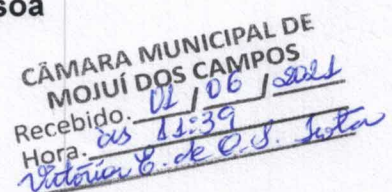 soa
CÂMARA MUNICIPAL DE
MOJUÍ DOS CAMPOS
Recebido. 01 / 06 / 2021
Hora. às 11:39
Victória E. de O. S.